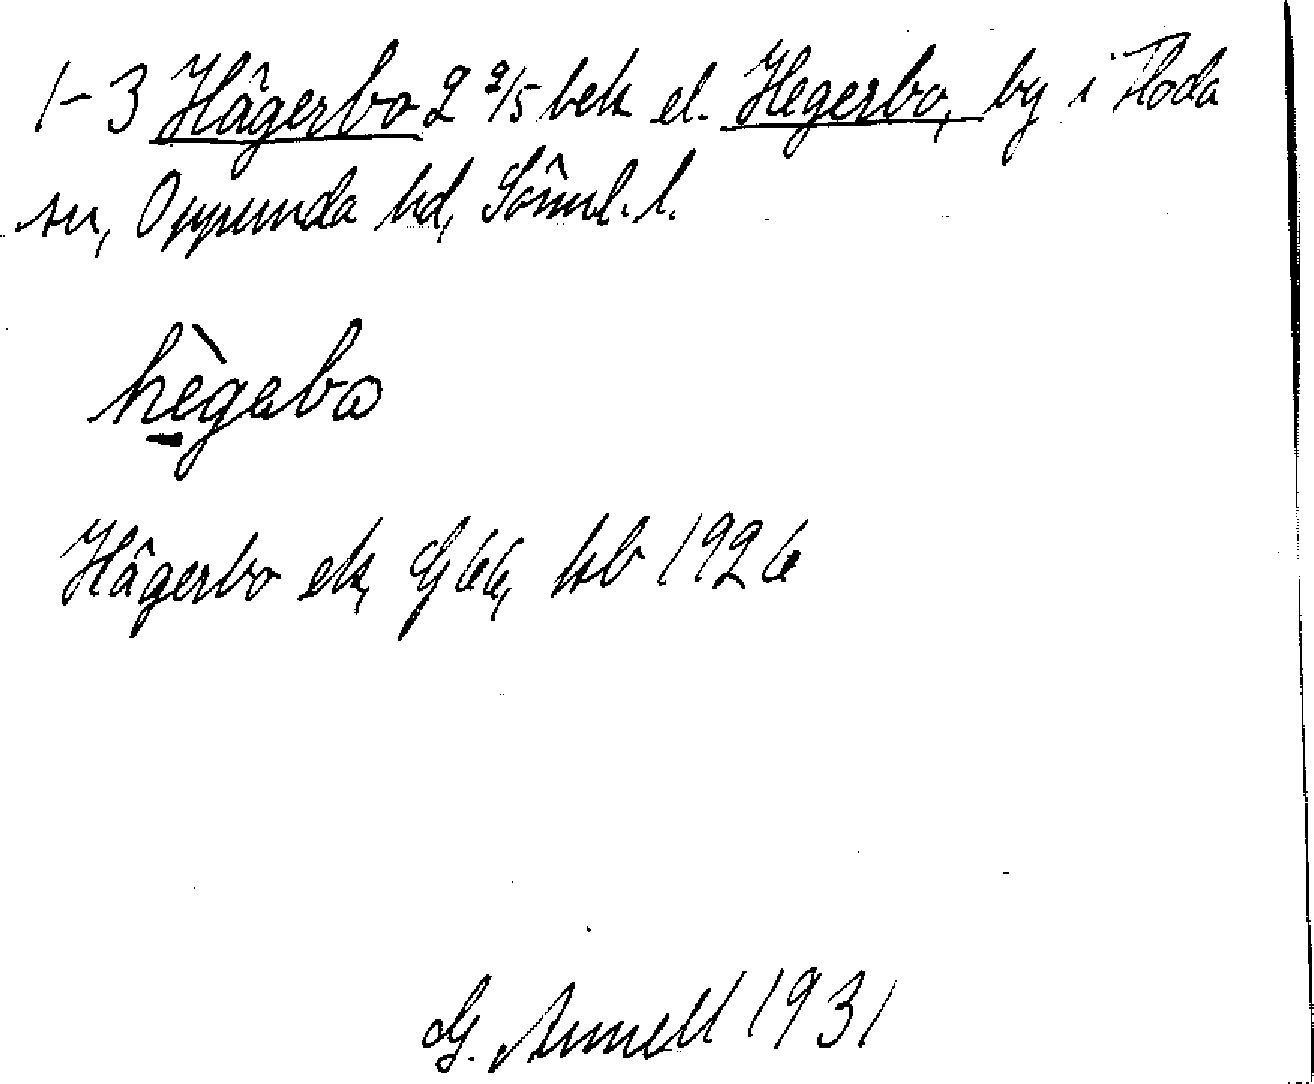 1-3 Hägerbo 2 2/5 bek el. Hegerbo, by i Floda
sn, Oppunda hd, Söml. l.
hègabo
Hägerbo ek, G 66, kb 1926
G. Annell 1931